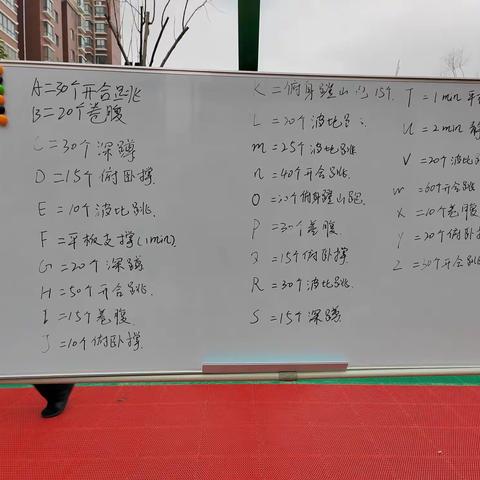 A=30个开合跳
B=20个卷腹
C=30个深蹲
D=15个俯卧撑.
E=10个波比跳.
F=平板支撑(1min)
G=20个深蹲
H=50个开合跳.
I=15个卷腹
J=10个俯卧撑.
K=俯身蹬山跑15个.
L=20个波比跳
m=25个波比跳
n=40个开合跳.
O=20个俯身蹬山跑
P=30个卷腹.
Q=15个俯卧撑
R=30个波比跳.
S=15个深蹲.
T=1min
U=2min
V=20个波比
W=60个开合跳
X=10个卷腹
Y=20个俯卧撑
Z=30个开合跳